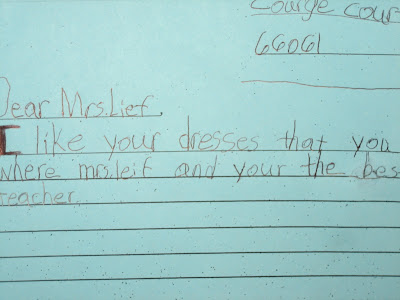 Courge Cour
66061
Dear Mrs.Lief,
I like your dresses that you
where mrs.leif and your the bes
teacher.